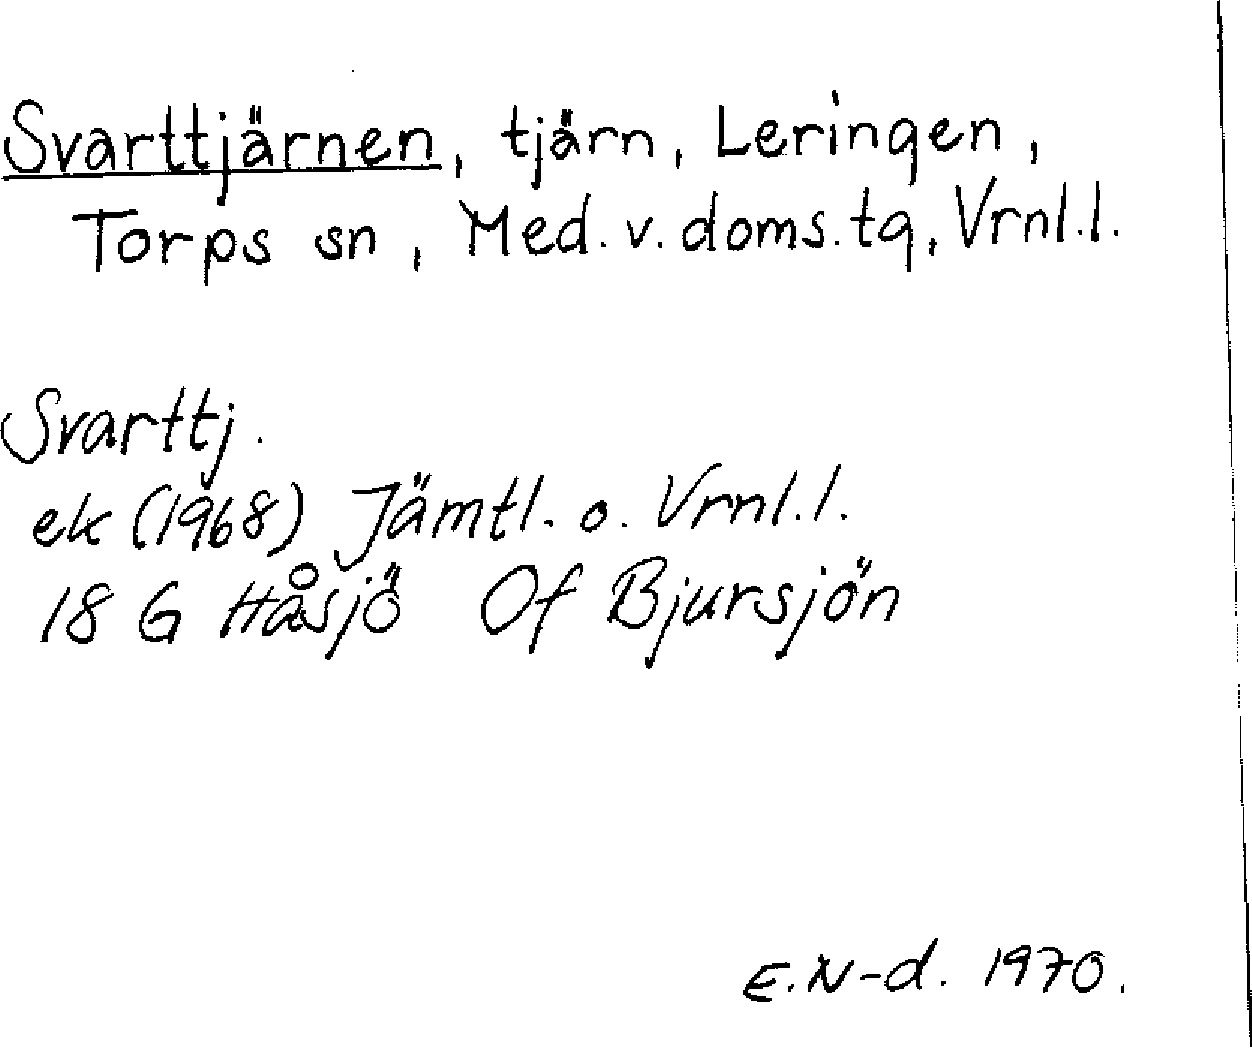 Svarttjärnen, tjärn, Leringen,
Torps sn, Med. v. doms. tg, Vrnl.l.
Svarttj.
ek (1968) Jämtl. o. Vrnl.l.
18 G Håsjö Of Bjursjön
E.N-d. 1970.